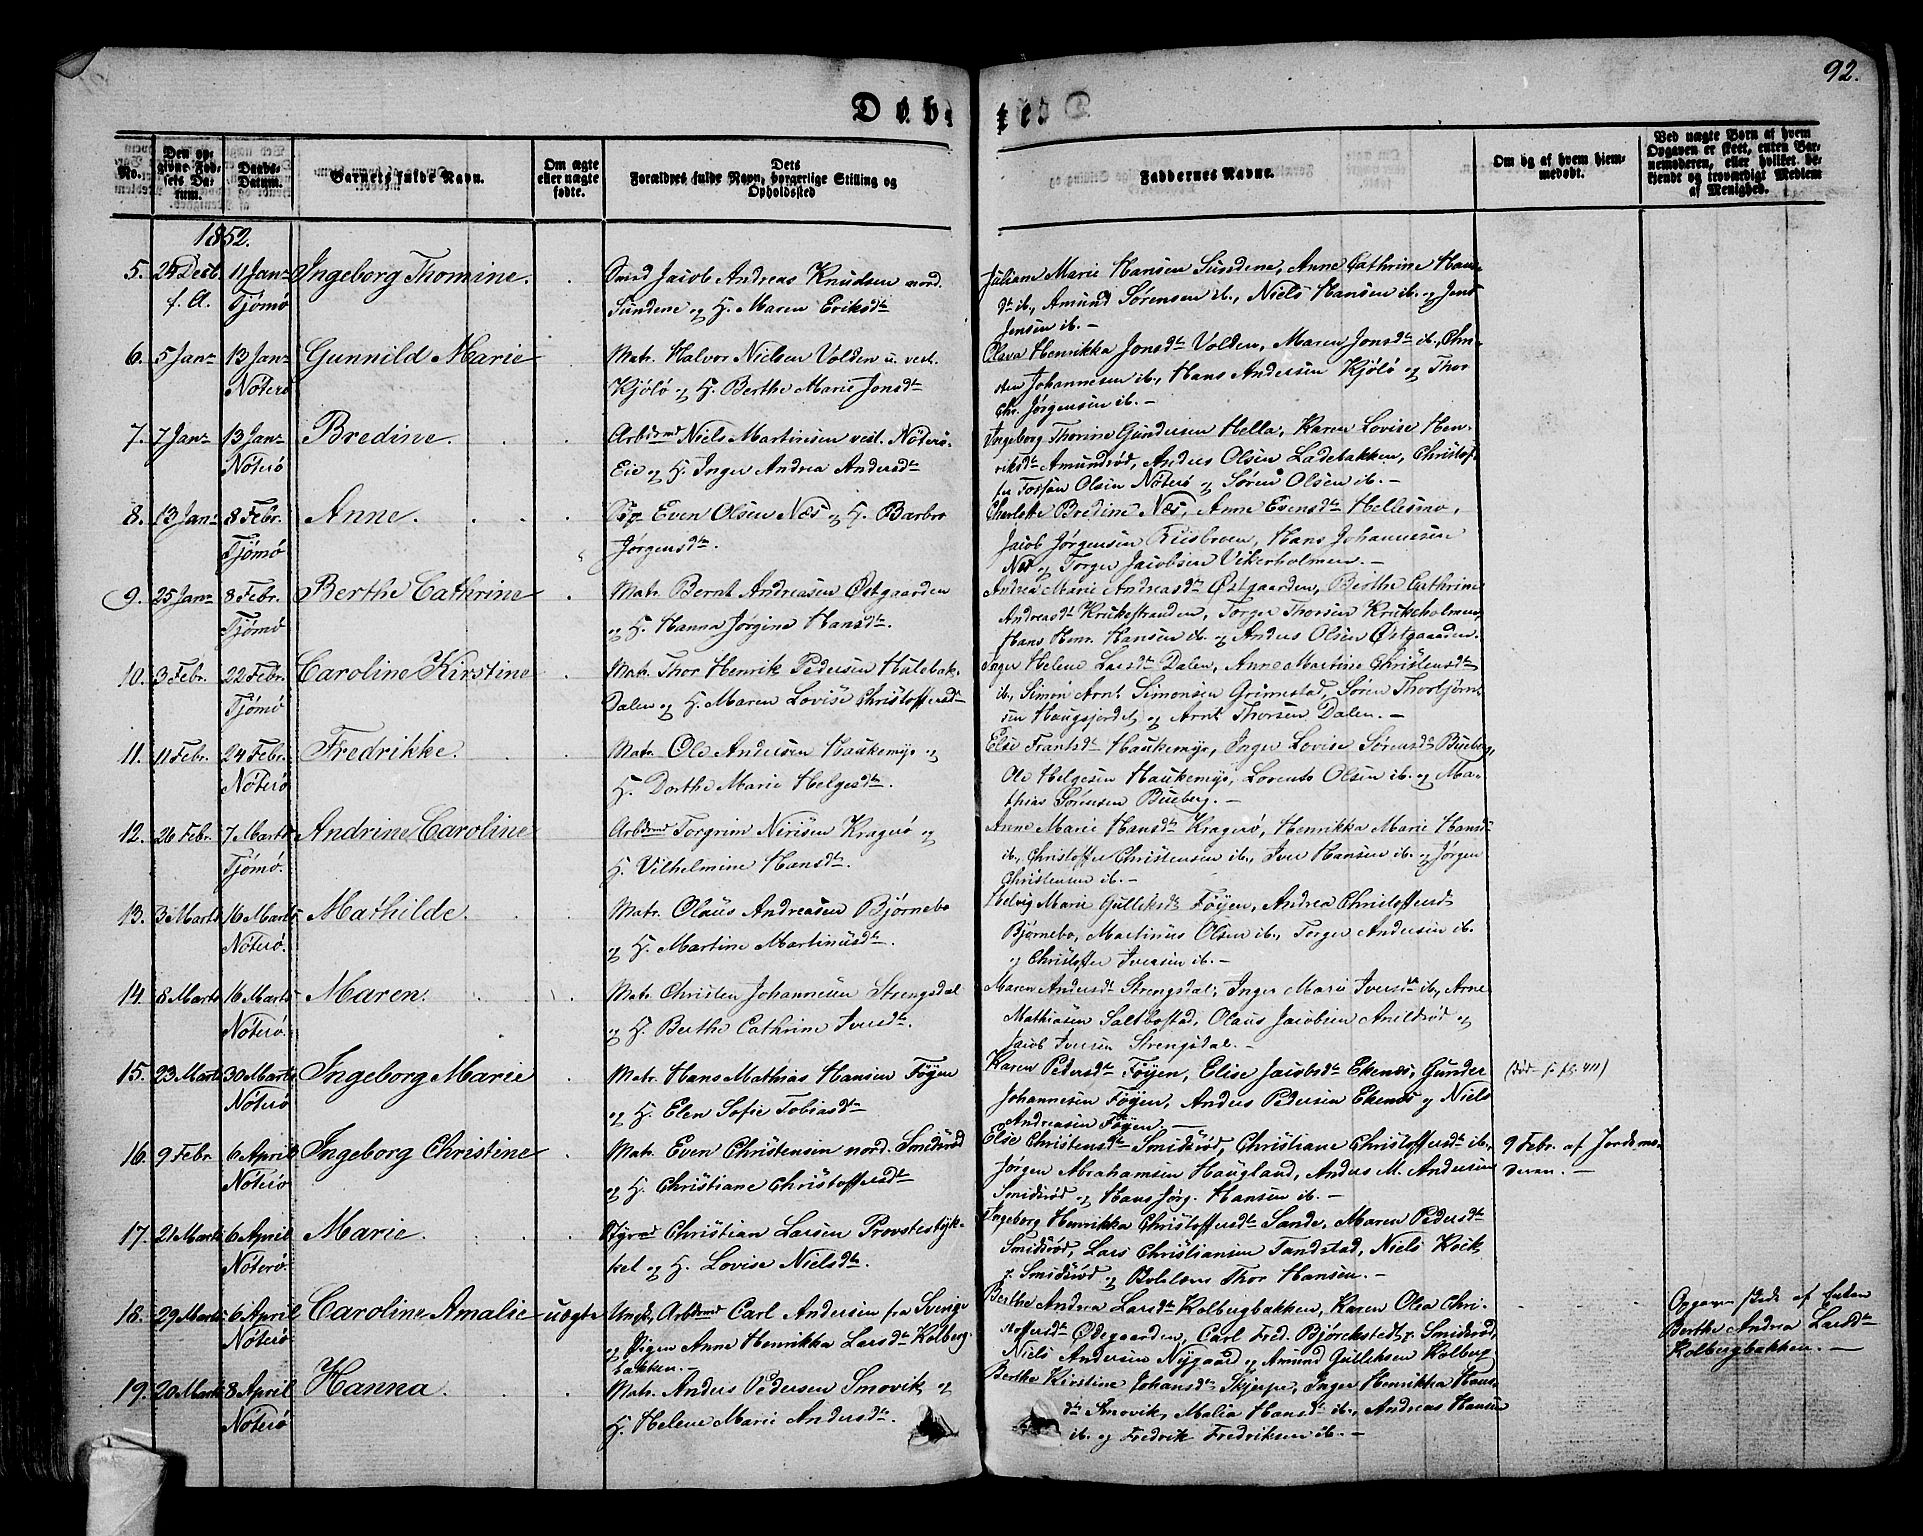 92.
Døb te
No.
Den opgivne Fødsels Datum.
Daabs-Datum.
Barnets fulde Navn.
Om ægte eller uægte fødte.
Dets Forældres fulde Navn, borgerlige Stilling og Opholdssted
Faddernes Navne.
Om og af hvem hjemmedøbt.
Ved uægte Børn af hvem Opgaven er skeet, enten Barnemoderen, eller hvilket bekjendt og troværdigt Medlem af Menighed.
1852.
5. 24 Dcbr f. A. 11 Janr Tjømø Ingeborg Thomine.
Jacob Andreas Knudsen nord.
Sundene og H. Maren Eriksdtr
Juliane Marie Hansen Sundene, Anne Cathrine Hansdtr ib., Amund Sørensen ib., Niels Hansen ib. og Jens
Jensen ib. —
6. 5 Janr 13 Janr Nøterø Gunnild Marie
Matr. Halvor Nielsen Volden u. vest.
KjøLø og H. Berthe Marie Jonsdtr
Olava Henrikka Jonsdtr Volden, Maren Jonsdtr ib., Christen Johannesen ib., Hans Andersen Kjølø og Thor
Chr. Jørgensen ib. —
7. 7 Janr 13 Janr Nøterø Bredine.
Arbsmd Niels Martinsen vest. Nøterø-
Eie og H. Inger Andrea Andersdtr
Ingeborg Thorine Gundersen Hella, Karen Lovise Henriksdtr Amundrød, Anders Olsen Ladebakken, Christoffer Olsen Nøterø og Søren Olsen ib. —
8. 13 Janr 8 Febr. Tjømø Anne.
Even Olsen Næs og H. Barbro
Jørgensdtr.
Charlotte Bredine Næs, Anne Evensdtr Hellesmo,
Jacob Jørgensen, Hans Johannesen
Næs og Torger Jacobsen Vikerholmen. —
9. 25 Janr 8 Febr. Tjømø Berthe Cathrine
Matr. Bernt Andreasen Østgaarden
og H. Hanna Jørgine Hansdtr.
Andrea Marie Andreasdtr Østgaarden, Berthe Cathrine
Andreasdt Krukestranden, Torger Thorsen Krukeholmen,
Hans Henr. Hansen ib. og Anders Olsen Østgaarden.
10. 3 Febr. 22 Febr Tjømø Caroline Kirstine
Matr. Thor Henrik Pedersen Hulebak-
Dalen og H. Maren Lovise Christoffersdtr
Inger Helene Larsdtr Dalen, Anne Martine Christensdtr
ib., Simon Arnt Simonsen Grimestad, Søren Thorbjørnsen Haugsjordet og Arnt Thorsen Dalen. —
11. 11 Febr. 24 Febr. Nøterø Fredrikke.
Matr. Ole Andersen Haukemyr og
H. Dorthe Marie Helgesdtr.
Else Frantsdtr Haukemyr, Inger Lovise Sørensdtr Bueberg,
Ole Helgesen Haukemyr, Lorents Olsen ib. og Mathias Sørensen Bueberg. —
12. 26 Febr. 7 Marts Tjømø. Andrine Caroline
Arbsmd Torgrim Nirisen Kragerø og
H. Vilhelmine Hansdtr.
Anne Marie Hansdtr Kragerø, Henrikka Marie Hansdtr
ib., Christoffer Christensen ib., Iver Hansen ib. og Jørgen
Christensen ib. —
13. 3 Marts 16 Marts Nøterø. Mathilde.
Matr. Olaus Andreasen Bjørnebo
og H. Martine Martinusdtr.
Helvig Marie Gulliksdtr Føyen, Andrea Christoffersdtr
Bjørnebo, Martinus Olsen ib., Torger Andersen ib.
og Christoffer Iversen ib. —
14. 8 Marts 16 Marts Nøterø. Maren.
Matr. Christen Johannesen Strengsdal
og H. Berthe Cathrine Iversdtr.
Maren Andersdtr Strengsdal, Inger Marie Iversdtr ib., Arne
Mathisen Saltbostad, Olaus Jacobsen Arildrød og
Jacob Iversen Strengsdal. —
15. 23 Marts 30 Marts Nøterø Ingeborg Marie
Matr. Hans Mathias Hansen Føyen
og H. Elen Sofie Tobiasdtr
Karen Pedersdtr Føyen, Elise Jacobsdtr Ekenes, Gunder
Johannesen Føyen, Anders Pedersen Ekenes og Niels
Andreasen Føyen. —
16. 9 Febr. 6 April Nøterø Ingeborg Christine
Matr. Even Christensen nord. Smidsrød
og H. Christiane Christoffersdtr
Else Christensdtr Smidsrød, Christiane Christoffersdtr ib.,
Jørgen Abrahamsen Haugland, Anders M. Andersen
Smidsrød og Hans Jørg. Hansen ib. —
9 Febr. af Jordemoderen. —
17. 21 Marts 6 April Nøterø. Marie.
Christian Larsen Provstestykket og H. Lovise Nielsdtr.
Ingeborg Henrikka Christoffersdtr Sande, Maren Pedersdtr
Smidsrød, Lars Christiansen Tandstad, Niels
Smidsrød og Thor Hansen. —
18. 29 Marts 6 April Nøterø Caroline Amalie uægte
Ungk. Arbsmd Carl Andersen fra Sverige
og Pigen Anne Henrikka Larsdtr Kolbergbakken. —
Berthe Andrea Larsdtr Kolbergbakken, Karen Olea Christoffersdtr Ødegaarden, Carl Fred. Bjørckstedt Smidsrød,
Niels Andersen Nygaard og Amund Gulliksen Kolberg
Opgaven skede af Enken
Berthe Andrea Larsdtr
Kolbergbakken. —
19. 20 Marts 8 April Nøterø Hanna.
Matr. Anders Pedersen Smovik og
H. Helene Marie Andersdtr.
Berthe Kirstine Johansdtr Skjerpe, Inger Henrikka Hansdtr Smovik, Malia Hansdtr ib., Andreas Hansen
ib. og Fredrik Fredriksen ib. —